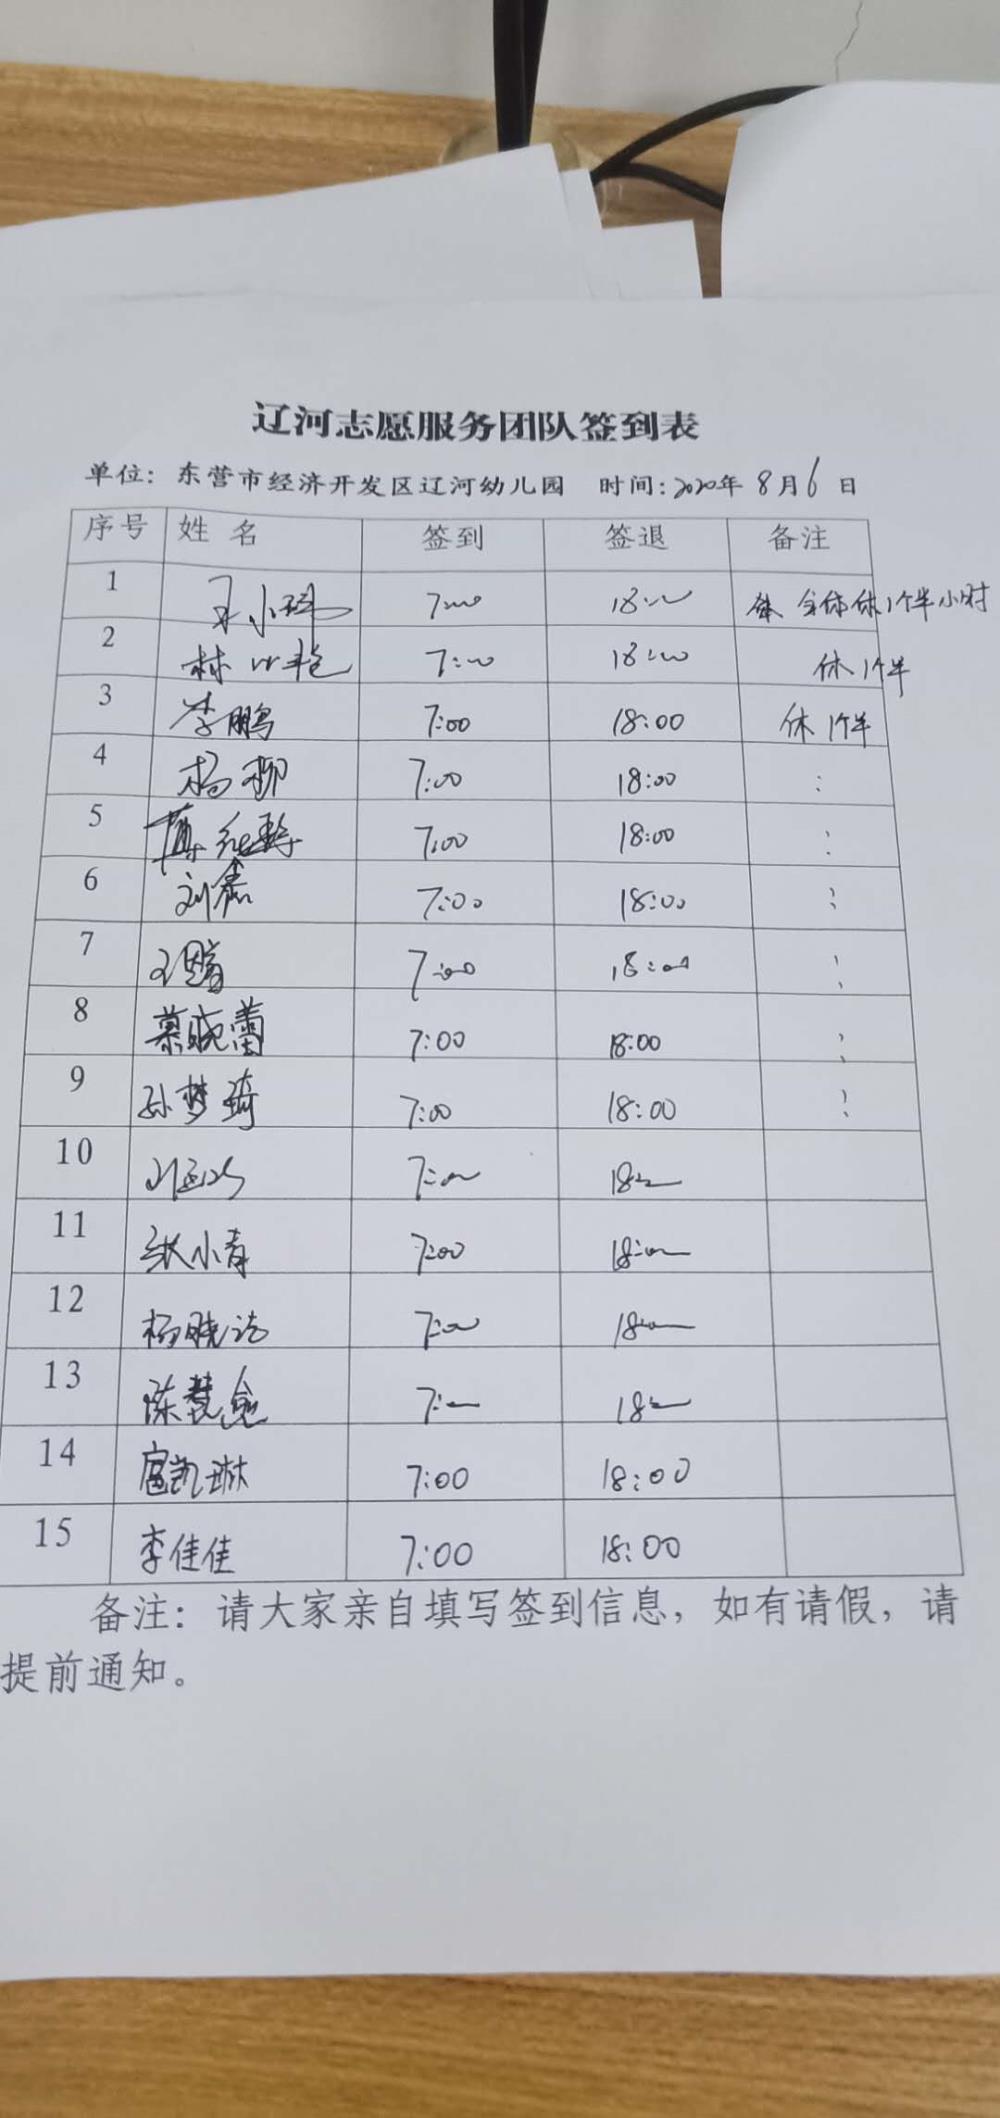 辽河志愿服务团队签到表
单位：东营市经济开发区辽河幼儿园 时间：2020年 8月6日
序号 姓名 签到 签退 备注
1 王小 7:00 18:00 全体休1个半小时
2 林 7:00 18:00 休1个半
3 李鹏 7:00 18:00 休1个半
4 杨柳 7:00 18:00 :
5 7:00 18:00 :
6 刘 7:00 18:00 :
7 王 7:00 18:00 :
8 慕晓蕾 7:00 18:00 :
9 孙梦琦 7:00 18:00 :
10 7:00 18:00
11 张小青 7:00 18:00
12 杨晓洁 7:00 18:00
13 陈慧 7:00 18:00
14 扈凯琳 7:00 18:00
15 李佳佳 7:00 18:00
备注：请大家亲自填写签到信息，如有请假，请
提前通知。